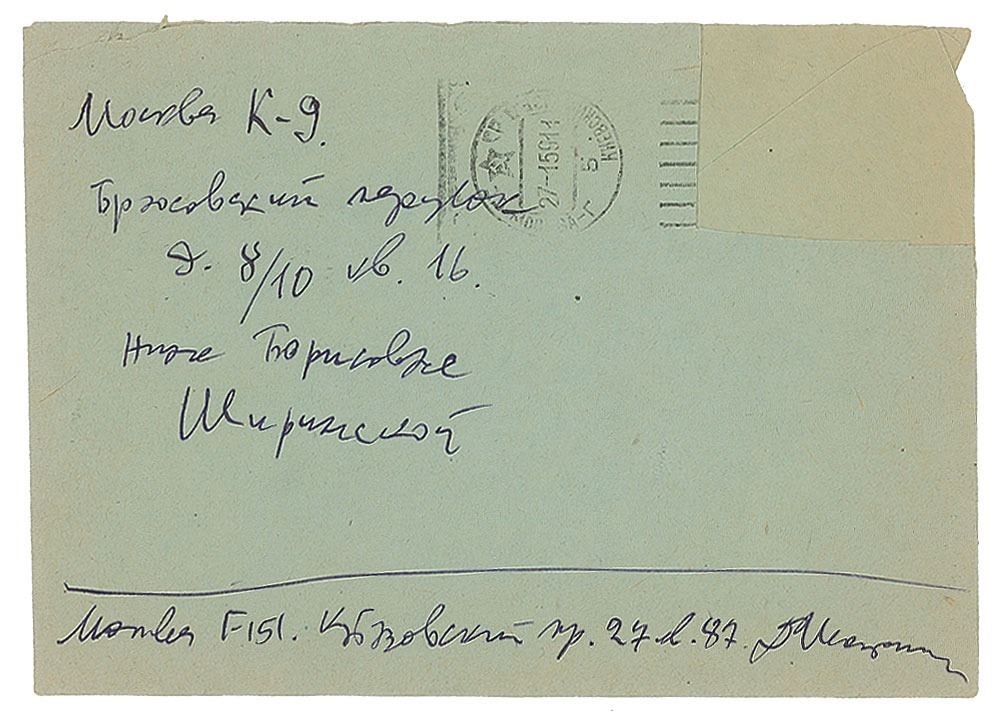 Москва К-9.
Брюсовский переулок
д. 8/10 кв. 16.
Нине Борисовне
Ширинской
27-1 59 14
5
МОСКВА-Г
Москва Г-151. Кутузовский пр. 27 к. 87.